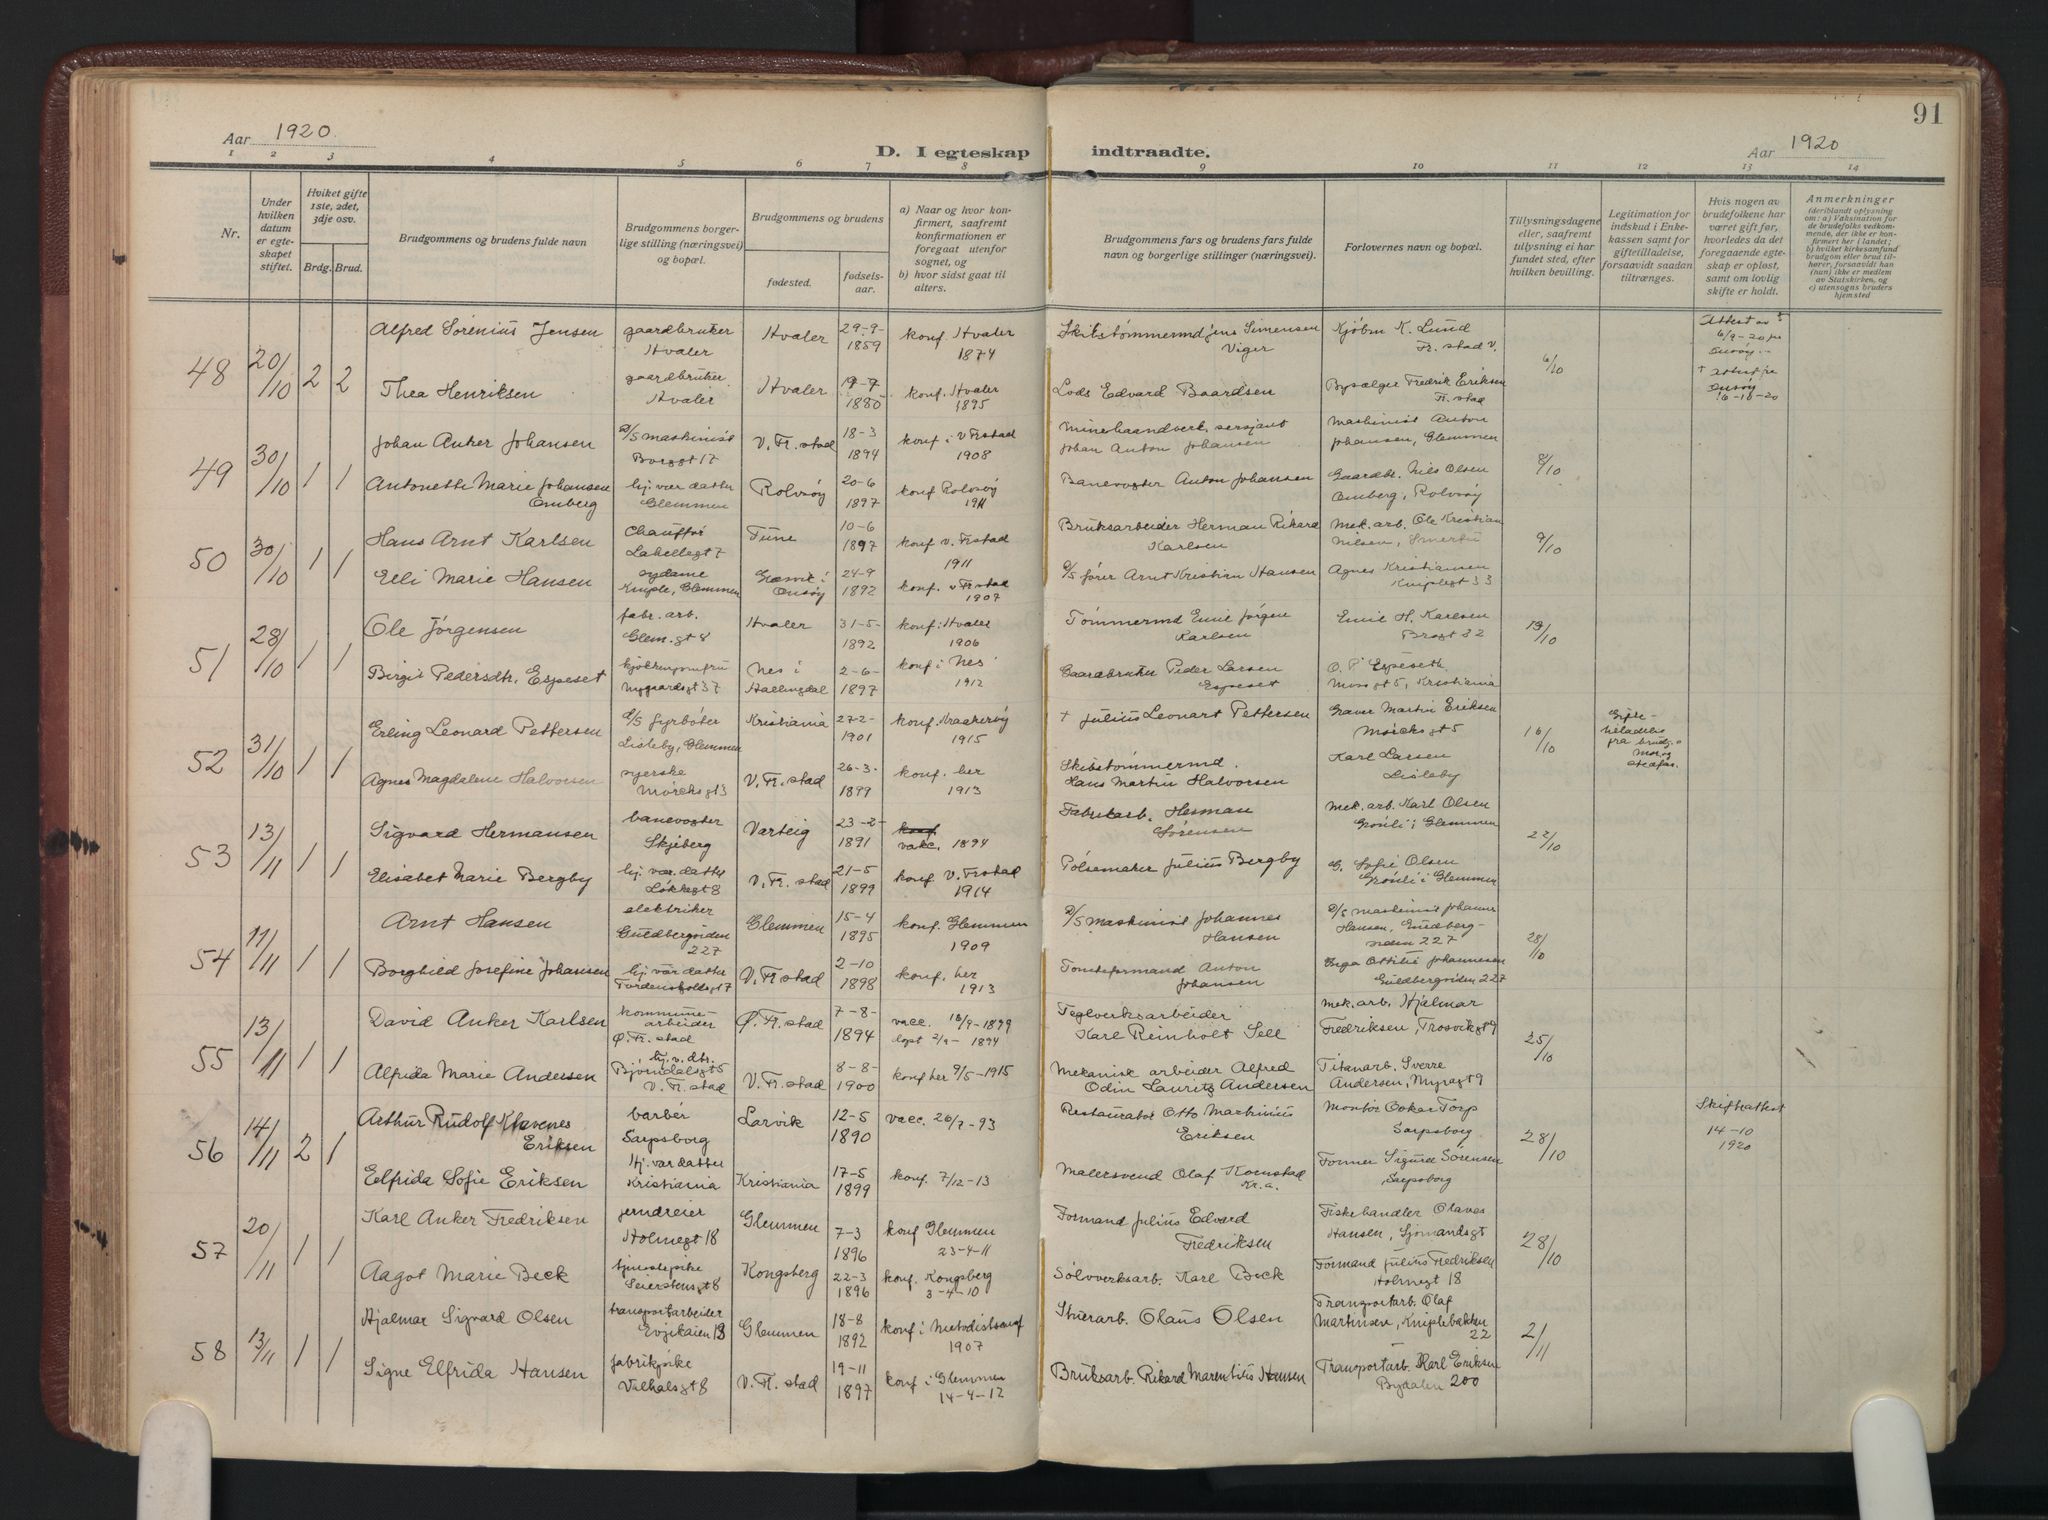 91
Aar 1920.
D. I egteskap indtraadte.
Aar 1920
1 2 3 4 5 6 7 8 9 10 11 12 13 14
Nr.
Under hvilken datum er egteskapet stiftet.
Hviket gifte 1ste, 2det, 3dje osv.
Brdg. Brud.
Brudgommens og brudens fulde navn
Brudgommens borgerlige stilling (næringsvei) og bopæl.
Brudgommens og brudens
fødested. fødselsaar.
a) Naar og hvor konfirmert, saafremt konfirmationen er foregaat utenfor sognet, og
b) hvor sidst gaat til alters.
Brudgommens fars og brudens fars fulde navn og borgerlige stillinger (næringsvei).
Forlovernes navn og bopæl.
Tillysningsdagene eller, saafremt tillysning ei har fundet sted, efter hvilken bevilling.
Legitimation for indskud i Enkekassen samt for giftetilladelse, forsaavidt saadan tiltrænges.
Hvis nogen av brudefolkene har været gift før, hvorledes da det foregaaende egteskap er opløst, samt om lovlig skifte er holdt.
Anmerkninger
(deriblandt oplysning om: a) Vaksination for de brudefolks vedkommende, der ikke er konfirmert her i landet; b) hvilket kirkesamfund brudgom eller brud tilhører, forsaavidt han (hun) ikke er medlem av Statskirken, og c) utensogns bruders hjemsted
48 20/10 2 2
Alfred Sørenius Jensen gaardbruker Hvaler Hvaler 29-9-1859 konf. Hvaler 1874 Skibstømmermd Jens Simensen Viger Kjøbm K. Lund Fr. stad V. 6/10 Attest av 6/9-20 fra Onsøy
Thea Henriksen gaardbruker Hvaler Hvaler 19-7-1880 konf. Hvaler 1895 Lods Edvard Baardsen Bysælger Fredrik Eriksen Fr. stad
† attest fra Onsøy 16-10-20
49 30/10 1 1
Johan Anker Johansen D/S maskinist Borggt 17 V. Fr. stad 18-3 1894 konf i V Frstad 1908 Minehaandverk. sersjant Johan Anton Johansen Maskinist Anton Johansen, Glemmen 8/10
Antonette Marie Johansen Omberg hj. vær. datter Glemmen Rolvsøy 20-6 1897 konf Rolvsøy 1911 Banevogter Anton Johansen Gaardbr. Nils Olsen Omberg, Rolvsøy
50 30/10 1 1
Hans Arnt Karlsen Chauffør Labellegt 7 Tune 10-6 1897 konf v. Frstad 1911 Bruksarbeider Herman Rikard Karlsen Mek. arb. Ole Kristian Nilsen, Smertu 9/10
Elli Marie Hansen sydame Kniple, Glemmen Græsvik i Onsøy 24-9 1892 konf. v Fr stad 1907 D/S fører Arnt Kristian Hansen Agnes Kristiansen Kniplegt 33
51 28/10 1 1
Ole Jørgensen fabr. arb. Glem.gt 8 Hvaler 31-5-1892 konf: Hvaler 1906 Tømmermd Emil Jørgen Karlsen Emil H. Karlsen Brogt 32 13/10
Birgit Pedersdtr. Espeset kjøkkenjomfru Nygaardsgt 37 Nes i Hallingdal 2-6-1897 konf i Nes 1912 Gaardbruker Peder Larsen Espeset O. P. Espeseth Mossgt 5, Kristiania
52 31/10 1 1
Erling Leonard Pettersen D/S fyrbøter Lisleby, Glemmen Kristiania 27-2-1901 konf. Kraakerøy 1915 † Julius Leonart Pettersen Graver Martin Eriksen Mørcksgt 5 16/10 Gifte-tiladelse fra brudg. mor og stefar.
Agnes Magdalene Halvorsen syerske Mørcksgt 3 V. Fr. stad 26-3-1899 konf. her 1913 Skibstømmermd. Hans Martin Halvorsen Karl Larsen Lisleby
53 13/11 1 1
Sigvard Hermansen banevogter Skjeberg Varteig 23-2-1891 konf vakc. 1894 Fabrikarb. Herman Sørensen Mek. arb. Karl Olsen Grønli i Glemmen 22/10
Elisabet Marie Bergby hj. vær. datter Løkkegt 8 V. Fr. stad 21-5 1899 konf V. Frstad 1914 Pølsemaker Julius Bergby G. Sofie Olsen Grønli i Glemmen
54 11/11 1 1
Arnt Hansen elektriker Guldbergsiden 227 Glemmen 15-4 1895 konf. Glemmen 1909 D/S maskinist Johannes Hansen D/S maskinist Johannes Hansen, Guldberg-siden 227 28/10
Borghild Josefine Johansen hj vær datter Tordenskjoldsgt 7 V. Fr. stad 2-10 1898 konf. her 1913 Tomteformand Anton Johansen Inga Ottilie Johannesen Guldbergsiden 227
55 13/11 1 1
David Anker Karlsen kommune-arbeider Ø. Fr. stad Ø. Fr. stad 7-8-1894 vacc. 18/9-1899 døpt 2/9-1894 Teglverksarbeider Karl Reinholt Sell Mek. arb. Hjalmar Fredriksen, Trosvikgt 9 25/10
Alfrida Marie Andersen hj. v. dtr. Bjørndalsgt 5 V. Fr. stad V. Fr. stad 8-8-1900 konf her 9/5-1915 Mekanisk arbeider Alfred Odin Lauritz Andersen Titanarb. Sverre Andersen, Myragt 9
56 14/11 2 1
Arthur Rudolf Klavenes Eriksen barbér Sarpsborg Larvik 12-5 1890 vacc. 26/7-93 Restauratør Otto Martinius Eriksen Montør Oskar Torp Sarpsborg 28/10 Skifteattest 14-10 1920
Elfrida Sofie Eriksen Hj. vær datter Kristiania Kristiania 17-5 1899 konf. 7/12-13 Malersvend Olaf Kornstad Kr.a. Former Sigurd Sørensen Sarpsborg
57 20/11 1 1
Karl Anker Fredriksen jerndreier Holmegt 18 Glemmen 7-3 1896 konf Glemmen 23-4-11 Formand Julius Edvard Fredriksen Fiskehandler Olaves Hansen, Sjømandsgt 28/10
Aagot Marie Beck tjenestepike Seierstensgt 8 Kongsberg 22-3 1896 konf. Kongsberg 3-4-10 Sølvverksarb. Karl Beck Formand Julius Fredriksen Holmegt 18
58 13/11 1 1
Hjalmar Sigvard Olsen transportarbeider Evjekaien 18 Glemmen 18-8 1892 konf i Metodistsamf 1907 Stuerarb. Olaus Olsen Transportarb. Olaf Martinsen, Kniplebakken 22 2/11
Signe Elfrida Hansen fabrikpike Valhalsgt 8 V. Fr. stad 19-11 1897 konf i Glemmen 14-4-12 Bruksarb. Rikard Marentius Hansen Transportarb. Karl Eriksen Bydalen 200